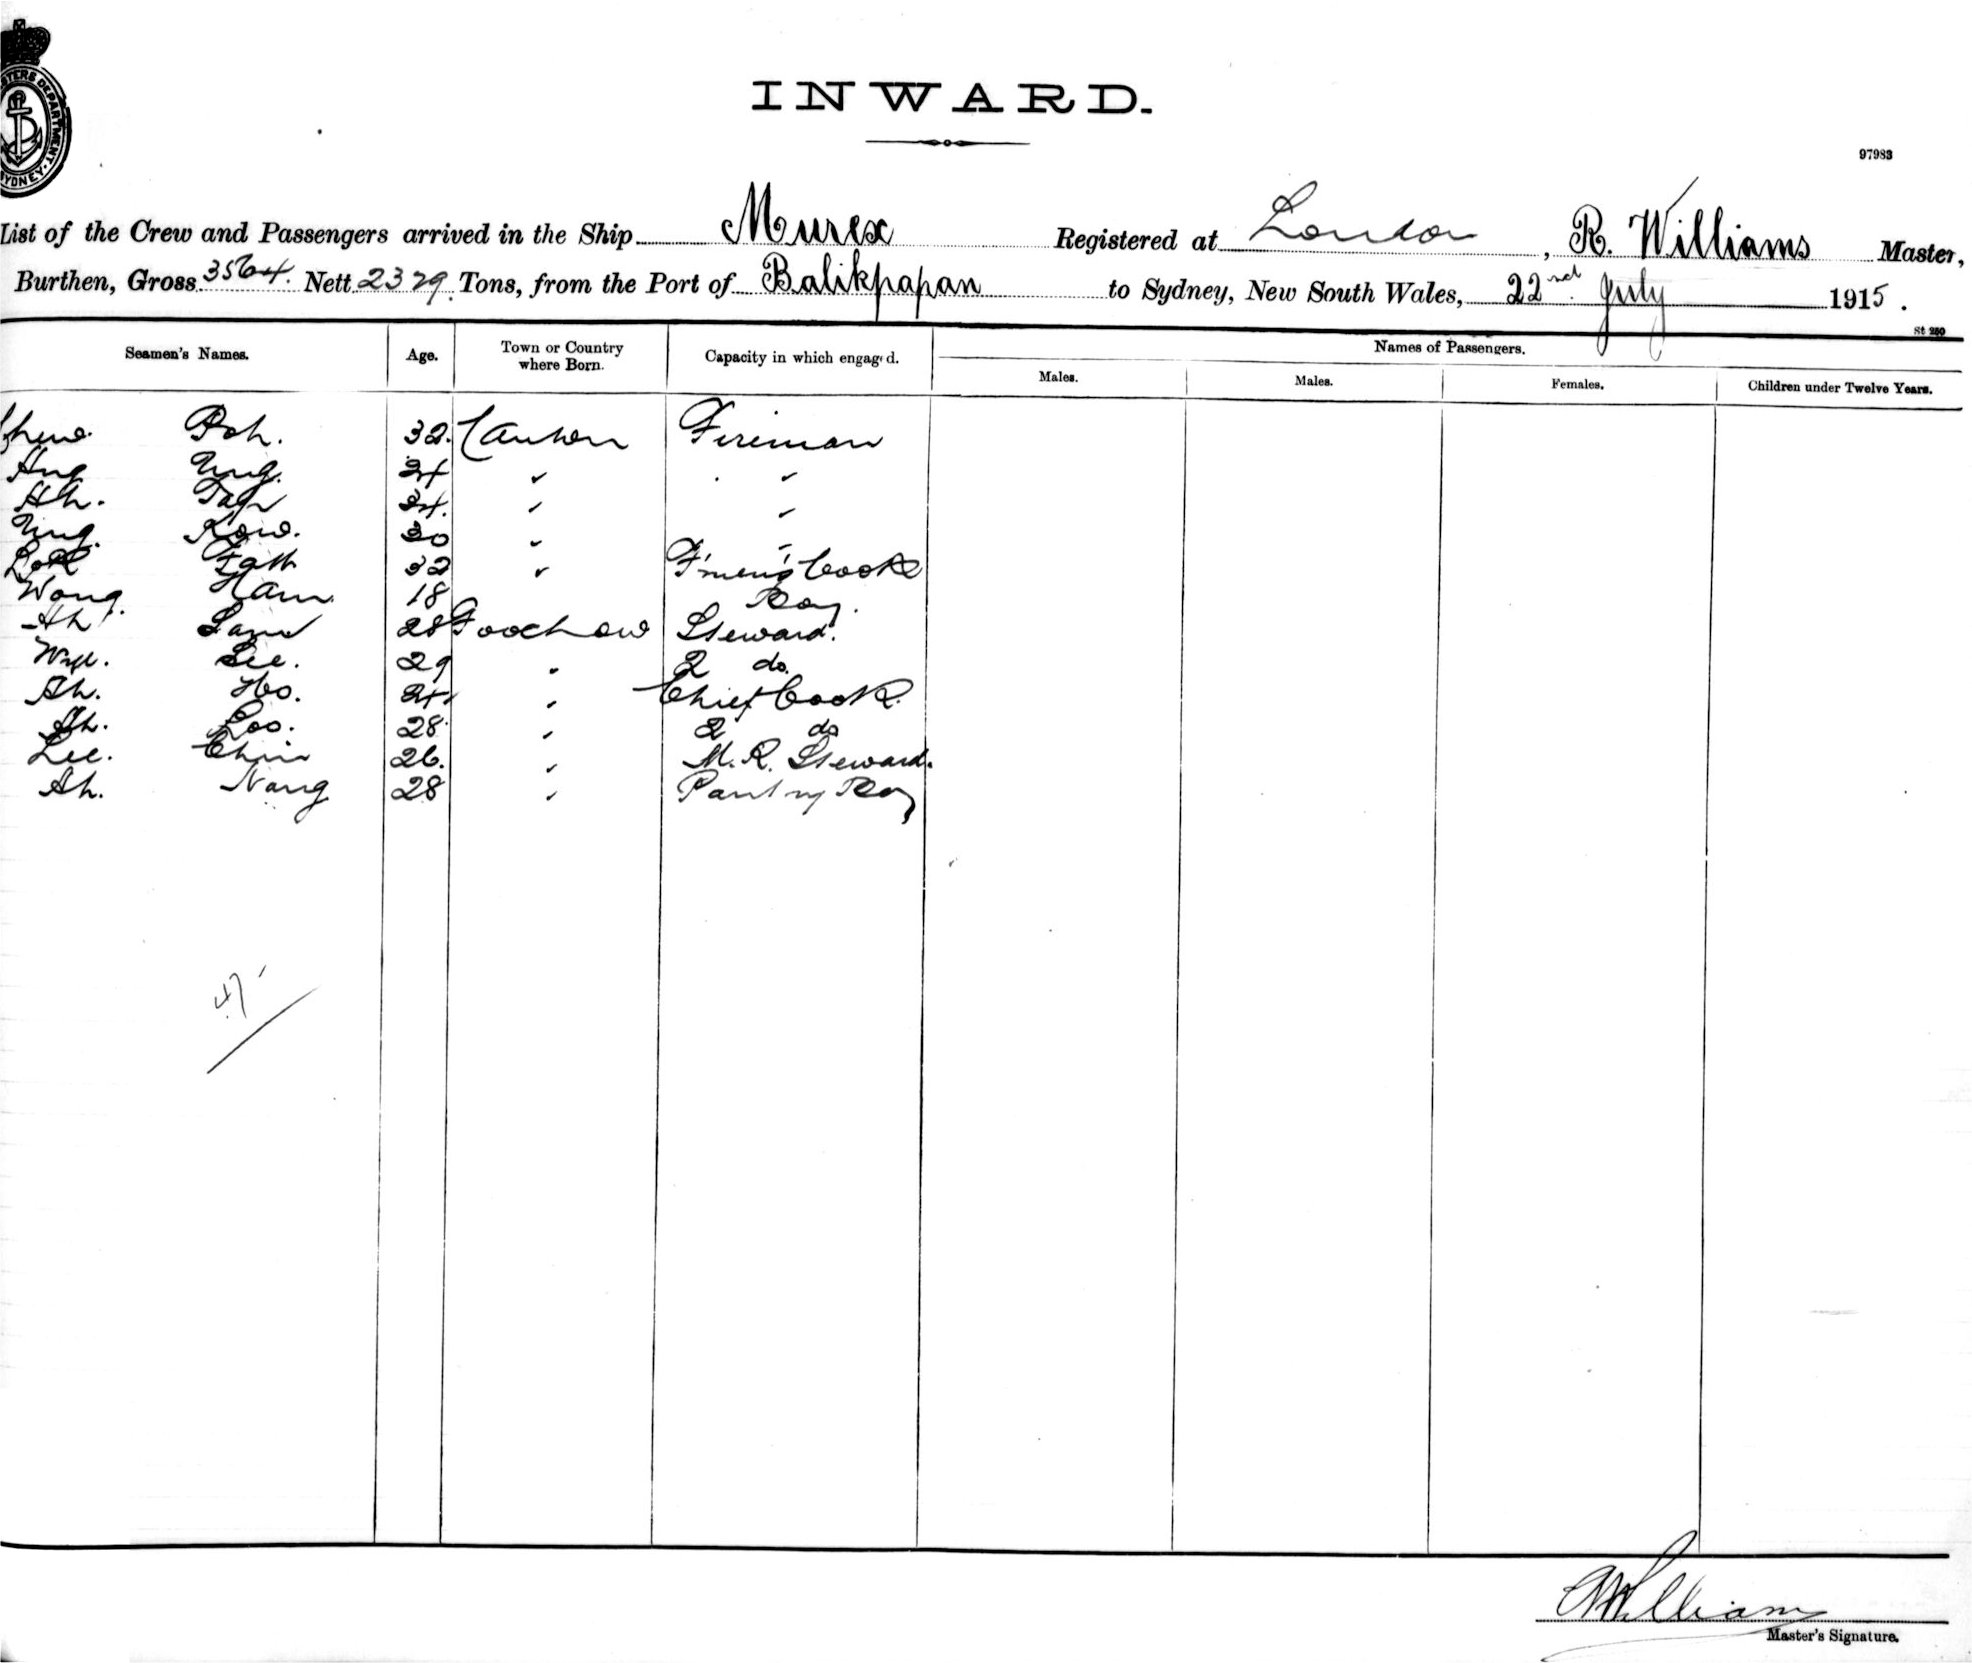 MASTERS DEPARTMENT. SYDNEY.
INWARD.
97983
List of the Crew and Passengers arrived in the Ship Murex Registered at London, R. Williams Master,
Burthen, Gross 3564. Nett 2329. Tons, from the Port of Balikpapan to Sydney, New South Wales, 22nd July 1915.
St 280
Seamen's Names. Age. Town or Country where Born. Capacity in which engaged. Names of Passengers.
Males. Males. Females. Children under Twelve Years.
Chew Boh. 32. Canton Fireman
Ung.
Ah. 34.
Ung. Kow. 30
32 F'men's Cook
Wong. Ham 18 Boy.
Ah 28 Foochow Steward.
Lee. 29 2 do.
Ah. Ho. Chief Cook.
Ah. Loo. 28 2 do
Lee. Chin 26. M.R. Steward.
Ah. Nang 28 Pantry Boy
47
R Williams
Master's Signature.